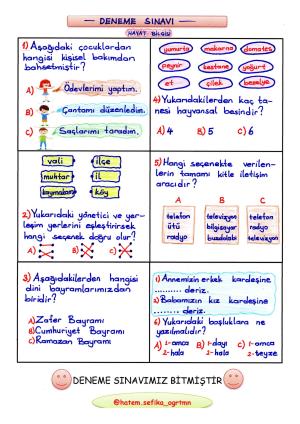 DENEME SINAVI
HAYAT BİLGİSİ
1) Aşağıdaki çocuklardan
hangisi kişisel bakımdan
bahsetmiştir?
A) Ödevlerimi yaptım.
B) Çantamı düzenledim.
C) Saçlarımı taradım.
yumurta makarna domates
peynir kestane yoğurt
et çilek bezelye
4) Yukarıdakilerden kaç ta-
nesi hayvansal besindir?
A) 4 B) 5 C) 6
vali ilçe
muhtar il
kaymakam köy
2) Yukarıdaki yönetici ve yer-
leşim yerlerini eşleştirirsek
hangi seçenek doğru olur?
A) B) C)
5) Hangi seçenekte verilen-
lerin tamamı kitle iletişim
aracıdır?
A B C
telefon televizyon telefon
ütü bilgisayar radyo
radyo buzdolabı televizyon
3) Aşağıdakilerden hangisi
dini bayramlarımızdan
biridir?
A) Zafer Bayramı
B) Cumhuriyet Bayramı
C) Ramazan Bayramı
1) Annemizin erkek kardeşine
......... deriz.
2) Babamızın kız kardeşine
......... deriz.
6) Yukarıdaki boşluklara ne
yazılmalıdır?
A) 1-amca B) 1-dayı C) 1-amca
2-hala 2-hala 2-teyze
DENEME SINAVIMIZ BİTMİŞTİR
@hatem.sefika_ogrtmn